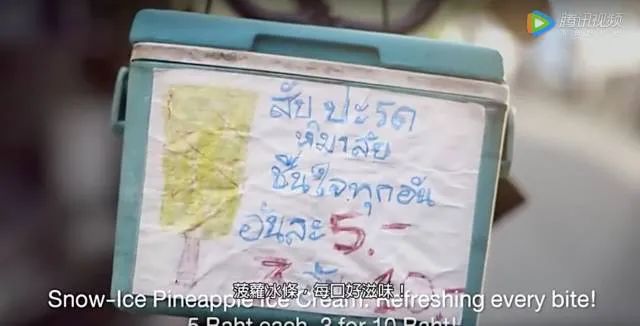 腾讯视频
สับปะรด
หิมาลัย
ชื่นใจทุกอัน
อันละ 5.-
3 10.-
菠蘿冰條，每口好滋味！
Snow-Ice Pineapple Ice Cream. Refreshing every bite!
5 Baht each, 3 for 10 Baht!